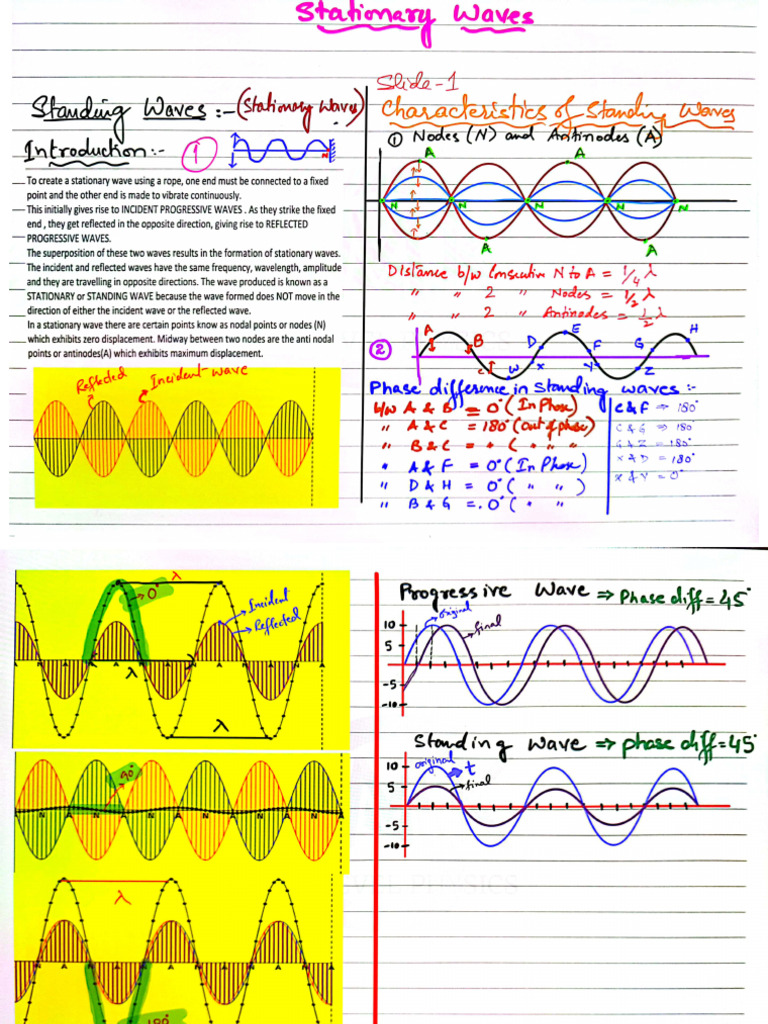 Stationary Waves
Standing Waves :- (Stationary Waves)
Introduction :- 1
N
To create a stationary wave using a rope, one end must be connected to a fixed
point and the other end is made to vibrate continuously.
This initially gives rise to INCIDENT PROGRESSIVE WAVES . As they strike the fixed
end , they get reflected in the opposite direction, giving rise to REFLECTED
PROGRESSIVE WAVES.
The superposition of these two waves results in the formation of stationary waves.
The incident and reflected waves have the same frequency, wavelength, amplitude
and they are travelling in opposite directions. The wave produced is known as a
STATIONARY or STANDING WAVE because the wave formed does NOT move in the
direction of either the incident wave or the reflected wave.
In a stationary wave there are certain points know as nodal points or nodes (N)
which exhibits zero displacement. Midway between two nodes are the anti nodal
points or antinodes(A) which exhibits maximum displacement.
Reflected Incident wave
Slide-1
Characteristics of Standing Waves
① Nodes (N) and Antinodes (A)
A A
N N N N N
A A
Distance b/w Consecutive N to A = 1/4 λ
" " 2 " Nodes = 1/2 λ
" " 2 " Antinodes = 1/2 λ
② A B C W D X E F Y G Z H
Phase difference in Standing waves :-
b/w A & B = 0° (In Phase)
" A & C = 180° (Out of phase)
" B & C = " ( " " "
" A & F = 0° (In Phase)
" D & H = 0° ( " " )
" B & G = 0° ( " "
C & F ⇒ 180°
C & G ⇒ 180
G & Z = 180°
X & D = 180°
X & Y = 0°
λ
→ 0°
Incident
Reflected
N A N A N A N A N A
λ
90°
N A N A N A N A N A
λ
N A N A N A N A
180°
Progressive Wave ⇒ Phase diff = 45°
original
final
10
5
-5
-10
Standing Wave ⇒ phase diff = 45°
original t
final
10
5
-5
-10